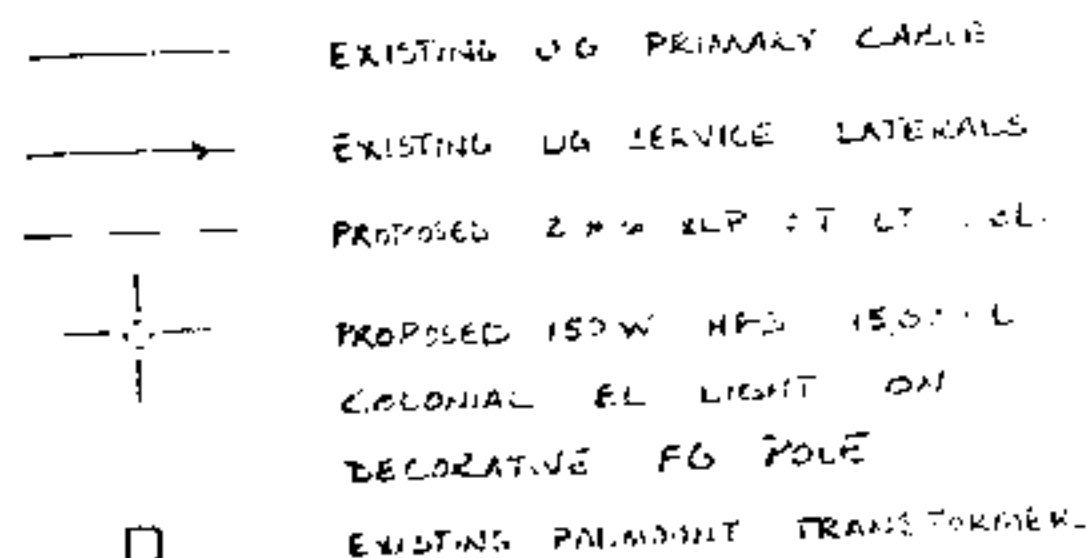 EXISTING UG PRIMARY CABLE
EXISTING UG SERVICE LATERALS
PROPOSED 2 # XLP ST LT
PROPOSED 150 W HPS 15,000 L
COLONIAL EL LIGHT ON
DECORATIVE FG POLE
EXISTING PADMOUNT TRANSFORMER